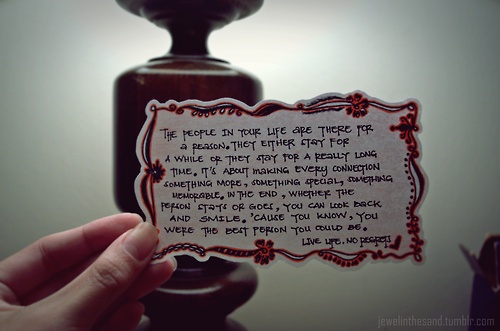 THE PEOPLE IN YOUR LIFE ARE THERE FOR
A REASON. THEY EITHER STAY FOR
A WHILE OR THEY STAY FOR A REALLY LONG
TIME. IT'S ABOUT MAKING EVERY CONNECTION
SOMETHING MORE, SOMETHING SPECIAL, SOMETHING
MEMORABLE. IN THE END, WHETHER THE
PERSON STAYS OR GOES, YOU CAN LOOK BACK
AND SMILE. 'CAUSE YOU KNOW, YOU
WERE THE BEST PERSON YOU COULD BE.
LIVE LIFE. NO REGRETS
jewelinthesand.tumblr.com